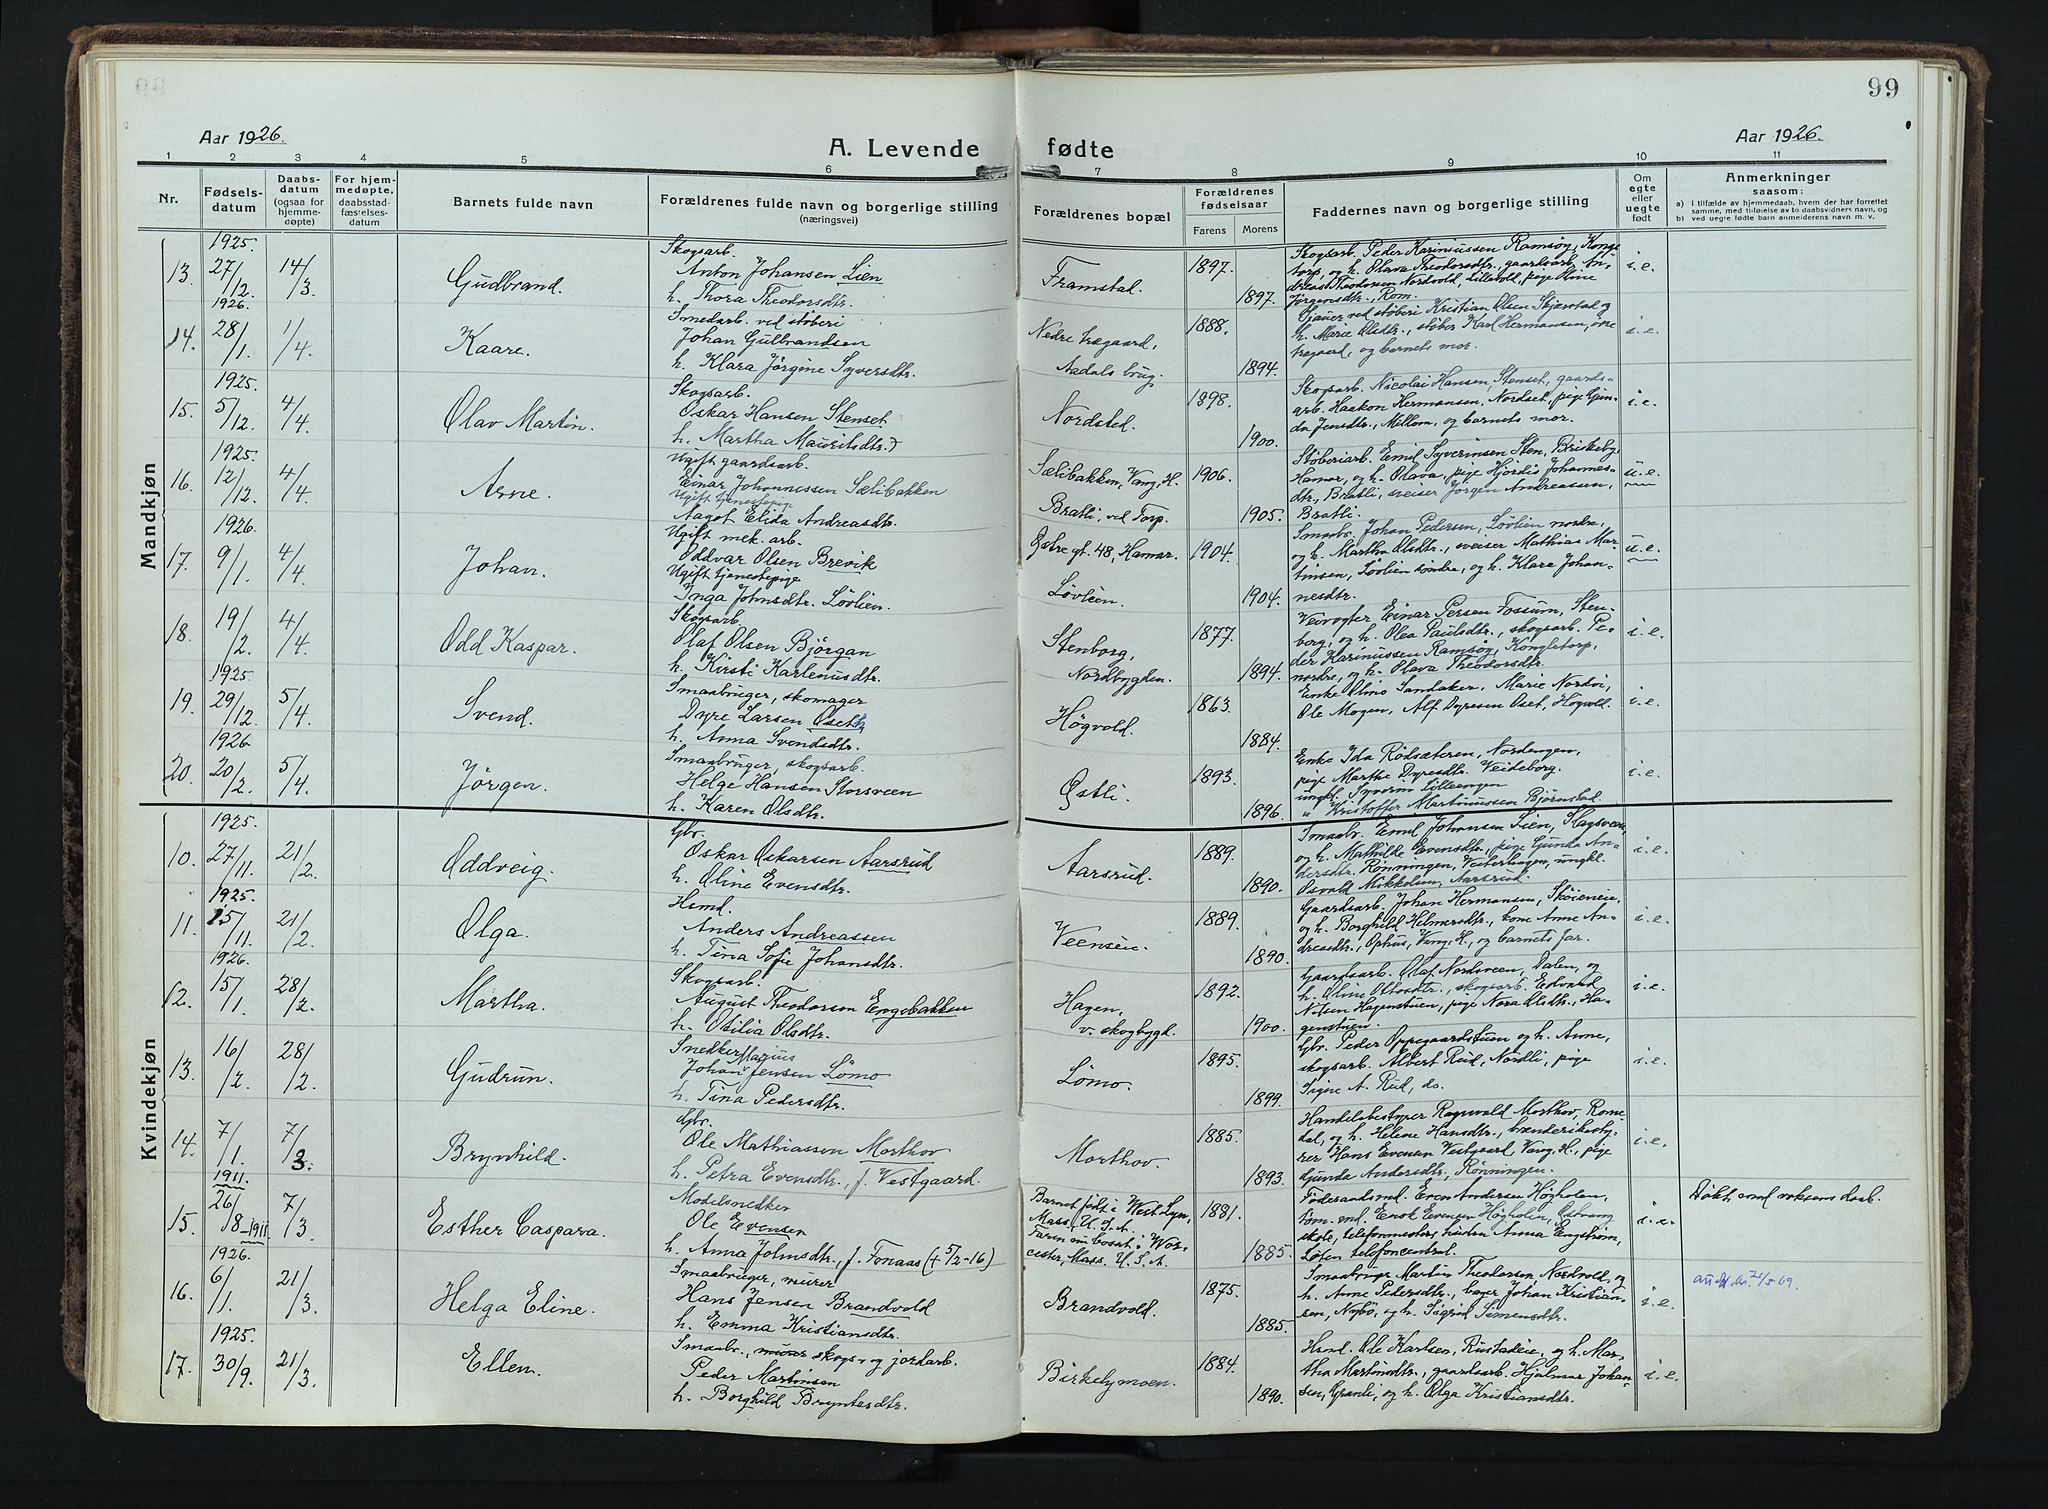 99
Aar 1926.
A. Levende fødte
Aar 1926.
1 2 3 4 5 6 7 8 9 10 11
Nr.
Fødsels-
datum
Daabs-
datum
(ogsaa for
hjemme-
døpte)
For hjem-
medøpte,
daabsstad-
fæstelses-
datum
Barnets fulde navn
Forældrenes fulde navn og borgerlige stilling
(næringsvei)
Forældrenes bopæl
Forældrenes
fødselsaar
Farens Morens
Faddernes navn og borgerlige stilling
Om
egte
eller
uegte
født
Anmerkninger
saasom:
a) i tilfælde av hjemmedaab, hvem der har forrettet
samme, med tilføielse av to daabsvidners navn, og
b) ved uegte fødte barn anmelderens navn m. v.
Mandkjøn
13. 1925. 27/12. 14/3 Gudbrand.
Skogsarb.
Anton Johansen Lien
h. Thora Theodorsdtr.
Framstad. 1897. 1897.
Skogsarb. Peder Karinussen Ramsøg, Kongle
torp, og h. Olava Theodorsdtr., gaardsarb. An-
dreas Theodorsen Nordvold, Lillevold, pige Oline
Jørgensdtr., Rom.
i.e.
14. 1926. 28/1. 1/4. Kaare.
Smedarb. ved støberi
Johan Gulbrandsen
h. Klara Jørgine Syversdtr.
Nedre hægaard,
Aadals brug. 1888. 1894.
Sjauer ved støberi Kristian Olsen Skjærstad og
h. Marie Olsdtr., støber Karl Hermansen, øvre
hægaard, og barnets mor.
i.e.
15. 1925. 5/12. 4/4. Olav Martin.
Skogsarb.
Oskar Hansen Stenset
h. Martha Mauritsdtr.
Nordsted. 1898. 1900.
Skogsarb. Nicolai Hansen, Stenset, gaards-
arb. Haakon Hermansen, Nordset, pige Gun-
da Jensdtr., Mellom, og barnets mor.
i.e.
16. 1925. 12/12. 4/4. Arne.
Ugift gaardsarb.
Einar Johannessen Sælibakken
Ugift tjenestepige
Aagot Elida Andreasdtr.
Sælibakken, Vang, H.
Bratli, ved Torp. 1906. 1905.
Støberiarb. Emil Syverinsen Sten, Briskeby,
Hamar, og h. Olava, pige Hjørdis Johannes-
dtr., Bratli, sveiser Jørgen Andreassen,
Bratli.
u.e.
17. 1926. 9/1. 4/4. Johan.
Ugift mek. arb.
Oddvar Olsen Brevik
Ugift tjenestepige
Inga Johnsdtr. Løvlien.
Østre gt. 48, Hamar.
Løvlien. 1904. 1904.
Smaabr. Johan Pedersen, Løvlien nordre,
og h. Martha Olsdtr., sveiser Mathias Mar-
tinsen, Løvlien søndre, og h. Klara Johan-
nesdtr.
u.e.
18. 19/2. 4/4. Odd Kaspar.
Skogsarb.
Olaf Olsen Bjørgan
h. Kirsti Karlenusdtr.
Stenborg,
Nordbygden. 1877. 1894.
Veivogter Einar Persen Fossum, Sten-
berg, og h. Olea Paulsdtr., skogsarb. Pe-
der Karinussen Ramsøg, Kongletorp,
nordre, og h. Olava Theodorsdtr.
i.e.
19. 1925. 29/12. 5/4. Svend.
Smaabruger, skomager
Dyre Larsen Oseth
h. Anna Svendsdtr.
Høgvold. 1863. 1884.
Enke Olina Sandaker, Marie Nordvi,
Ole Mogen, Alf Dyresen Oset, Høgvold.
i.e.
20. 1926. 20/2. 5/4. Jørgen.
Smaabruger, skogsarb.
Helge Hansen Storsveen
h. Karen Olsdtr.
Østli. 1893. 1896.
Enke Ida Rødsæteren, Nordengen,
pige Marthe Dyresdtr. Veideborg.
ungkl. Syverin Lilleengen
" Kristoffer Martinussen Bjørnstad.
i.e.
Kvindekjøn
10. 1925. 27/11. 21/2. Oddveig.
Gbr.
Oskar Oskarsen Aarsrud
h. Oline Evensdtr.
Aarsrud. 1889. 1890.
Smaabr. Emil Johansen Lien, Slagsveen,
og h. Mathilde Evensdtr., pige Gunda An-
dersdtr. Rønningen, Vesterhagen, ungkl.
Osvald Mikkelsen, Aarsrud.
i.e.
11. 1925. 15/11. 21/2. Olga.
Hsmd.
Anders Andreassen
h. Tina Sofie Johansdtr.
Veensen. 1889. 1890.
Gaardsarb. Johan Hermansen, Skøieneie,
og h. Borghild Helmersdtr., kone Anne An-
dreasdtr., Ophus, Vang, H., og barnets far.
i.e.
12. 1926. 15/1. 28/2. Martha.
Skogsarb.
August Theodorsen Engebakken
h. Otilia Olsdtr.
Hagen,
v. skogbygd. 1892. 1900.
Gaardsarb. Olaf Nordsveen, Dalen, og
h. Oline Olsdtr., skogsarb. Edvald
Nilsen Hagenstuen, pige Nora Olsdtr., Ha-
genstuen.
i.e.
13. 16/2. 28/2. Gudrun.
Snedker
Johan Marius Jensen Lømo
h. Tina Pedersdtr.
Lømo. 1895. 1899.
Gbr. Peder Oppegaardstuen og h. Anne,
skogsarb. Albert Rud, Nordli, pige
Signe A. Rud, do.
i.e.
14. 7/1. 7/3. Brynhild.
Gbr.
Ole Mathiassen Morthov
h. Petra Evensdtr., f. Vestgaard.
Morthov. 1885. 1893.
Handelsbestyrer Ragnvald Morthov, Rome
dal, og h. Helene Hansdtr., brænderibesty-
rer Hans Evensen Vestgaard, Vang, H., pige
Gunda Andersdtr., Rønningen.
i.e.
15. 1911. 26/8-1911. 7/3. Esther Caspara.
Modelsnedker
Ole Evensen
h. Anna Johnsdtr., f. Fonaas (+ 5/2-16)
Barnet født i West Lyn,
Mass., U.S.A.
Faren nu bosat i Wor-
cester, Mass. U.S.A.
1881. 1885.
Føderaadsmd. Even Andersen Høgholen,
tøm.md. Enok Evensen Høgholen, Østvang
skole, telefonmesterinden Anna Engstrøm,
Løten telefoncentral.
i.e.
Døpt med voksens daab.
16. 1926. 6/1. 21/3. Helga Eline.
Smaabruger, murer
Hans Jensen Brandvold
h. Emma Kristiansdtr.
Brandvold. 1875. 1885.
Smaabruger Martin Theodorsen, Nordvold, og
h. Anne Pedersdtr., bager Johan Kristian-
sen, Nybø, og h. Sigrid Simensdtr.
i.e.
17. 1925. 30/9. 21/3. Ellen.
Smaabr., murer skogs- og jordarb.
Peder Martinsen
h. Borghild Bryntesdtr.
Birkelymoen. 1884. 1890.
Hsmd. Ole Karlsen, Rustadeie, og h. Mar-
tha Martinsdtr., gaardsarb. Hjalmar Johan-
sen, Granli, og h. Olga Kristiansdtr.
i.e.